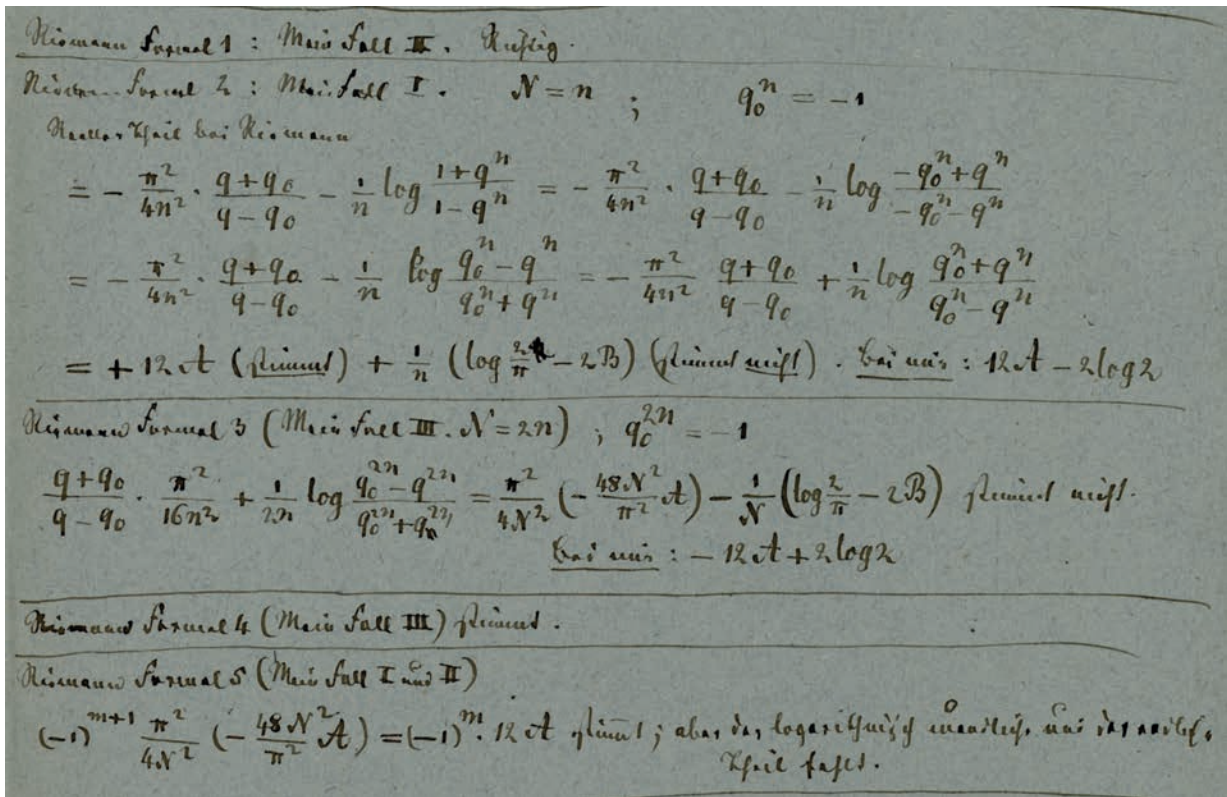 Riemann Formel 1 : Mein Fall II. Richtig.
Riemann Formel 2 : Mein Fall I. N = n ; q_0^n = -1
Reeller Theil bei Riemann
= - \frac{\pi^2}{4n^2} \cdot \frac{q+q_0}{q-q_0} - \frac{1}{n} \log \frac{1+q^n}{1-q^n} = - \frac{\pi^2}{4n^2} \cdot \frac{q+q_0}{q-q_0} - \frac{1}{n} \log \frac{-q_0^n+q^n}{-q_0^n-q^n}
= - \frac{\pi^2}{4n^2} \cdot \frac{q+q_0}{q-q_0} - \frac{1}{n} \log \frac{q_0^n-q^n}{q_0^n+q^n} = - \frac{\pi^2}{4n^2} \frac{q+q_0}{q-q_0} + \frac{1}{n} \log \frac{q_0^n+q^n}{q_0^n-q^n}
= + 12 A (stimmt) + \frac{1}{n} (log \frac{2}{\pi} - 2B) (stimmt nicht). Bei mir : 12 A - 2 log 2
Riemann Formel 3 (Mein Fall III. N = 2n) ; q_0^{2n} = -1
\frac{q+q_0}{q-q_0} \cdot \frac{\pi^2}{16n^2} + \frac{1}{2n} \log \frac{q_0^{2n}-q^{2n}}{q_0^{2n}+q^{2n}} = \frac{\pi^2}{4N^2} (- \frac{48N^2}{\pi^2} A) - \frac{1}{N} (\log \frac{2}{\pi} - 2B) stimmt nicht.
Bei mir : - 12 A + 2 log 2
Riemann Formel 4 (Mein Fall III) stimmt.
Riemann Formel 5 (Mein Fall I und II)
(-1)^{m+1} \frac{\pi^2}{4N^2} (- \frac{48N^2}{\pi^2} A) = (-1)^m \cdot 12 A stimmt ; aber das logarithmisch unendliche und der endliche
Theil fehlt.